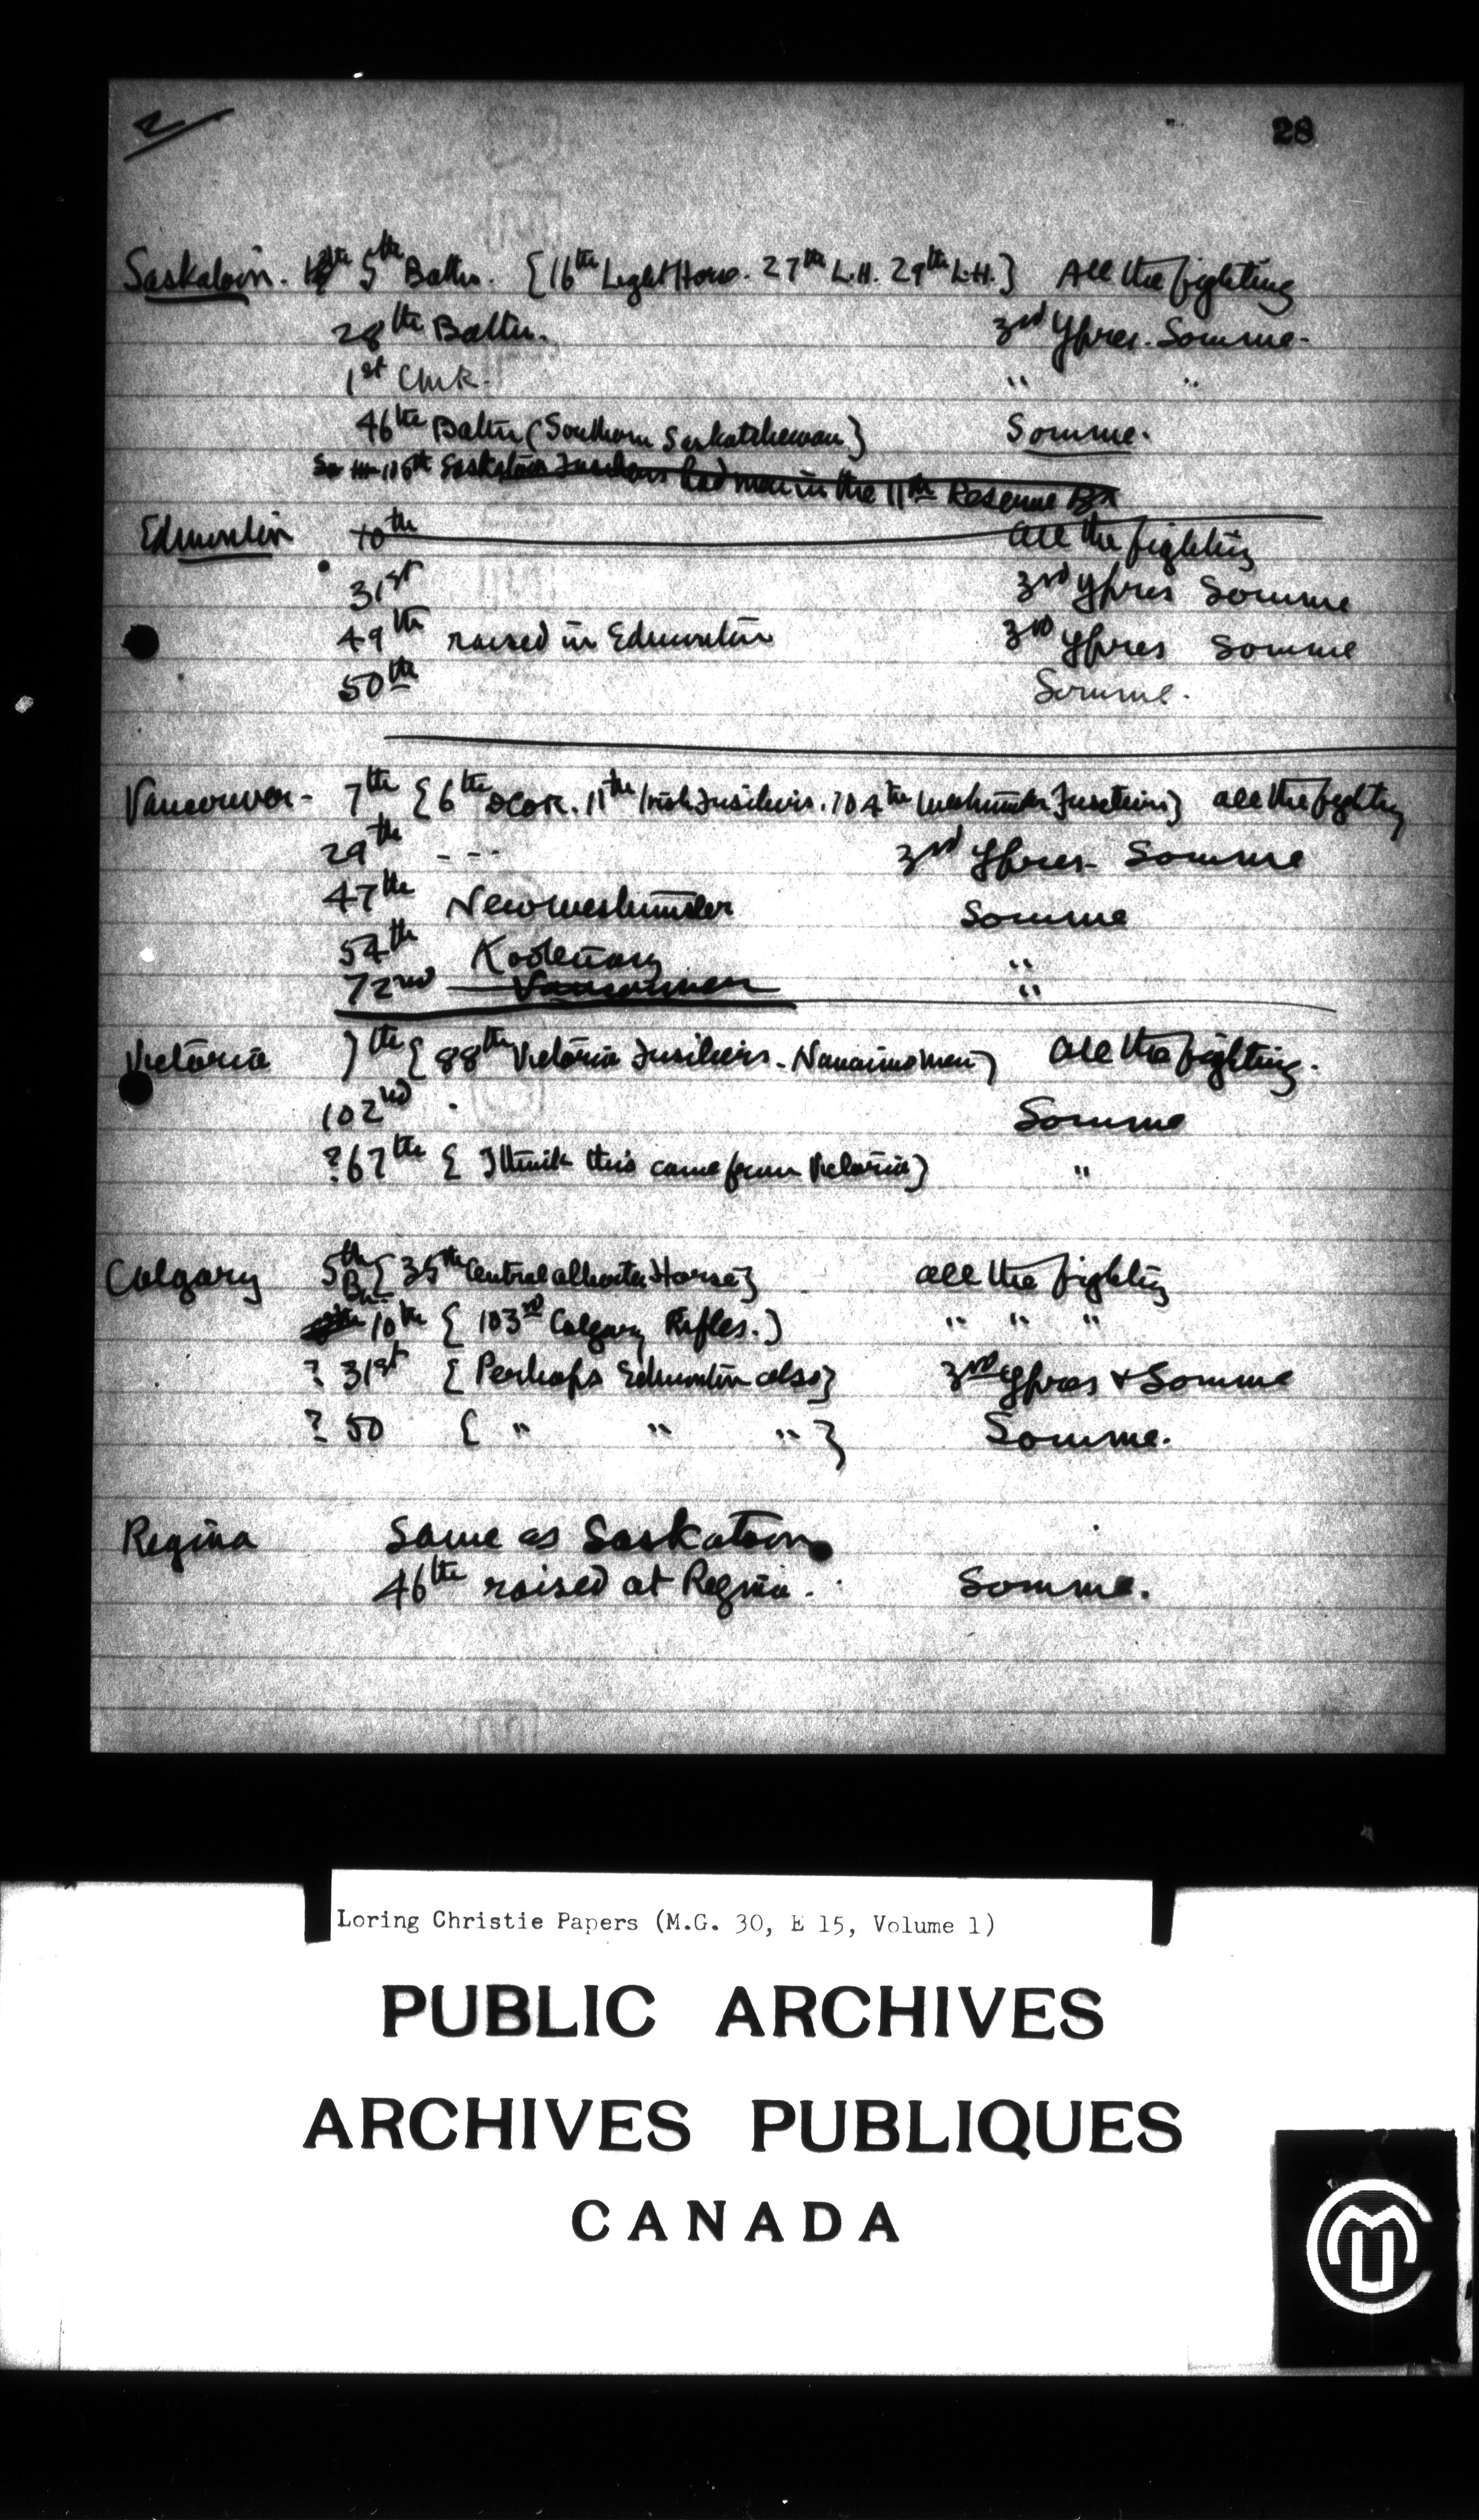 2
28
Saskatoon. 5th Battn. {16th Light Horse. 27th L.H. 29th L.H.} All the fighting
28th Battn. 3rd Ypres. Somme.
1st CMR. " "
46th Battn (Southern Saskatchewan} Somme.
105th Saskatoon Fusiliers had men in the 11th Reserve Bn
Edmonton 10th all the fighting
31st 3rd Ypres Somme
49th raised in Edmonton 3rd Ypres Somme
50th Somme.
Vancouver - 7th {6th DCOR. 11th Irish Fusiliers. 104th Westminster Fusiliers} all the fighting
29th - - - 3rd Ypres - Somme
47th New Westminster Somme
54th Kootenay "
72nd Vancouver "
Victoria 7th {88th Victoria Fusiliers - Nanaimo men} all the fighting.
102nd . Somme
? 67th { I think this came from Victoria} "
Calgary 5th Bn. {35th Central Alberta Horse} all the fighting
10th { 103rd Calgary Rifles.} " " "
? 31st { Perhaps Edmonton also} 3rd Ypres & Somme
? 50 { " " " } Somme.
Regina Same as Saskatoon
46th raised at Regina. Somme.
Loring Christie Papers (M.G. 30, E 15, Volume 1)
PUBLIC ARCHIVES
ARCHIVES PUBLIQUES
CANADA